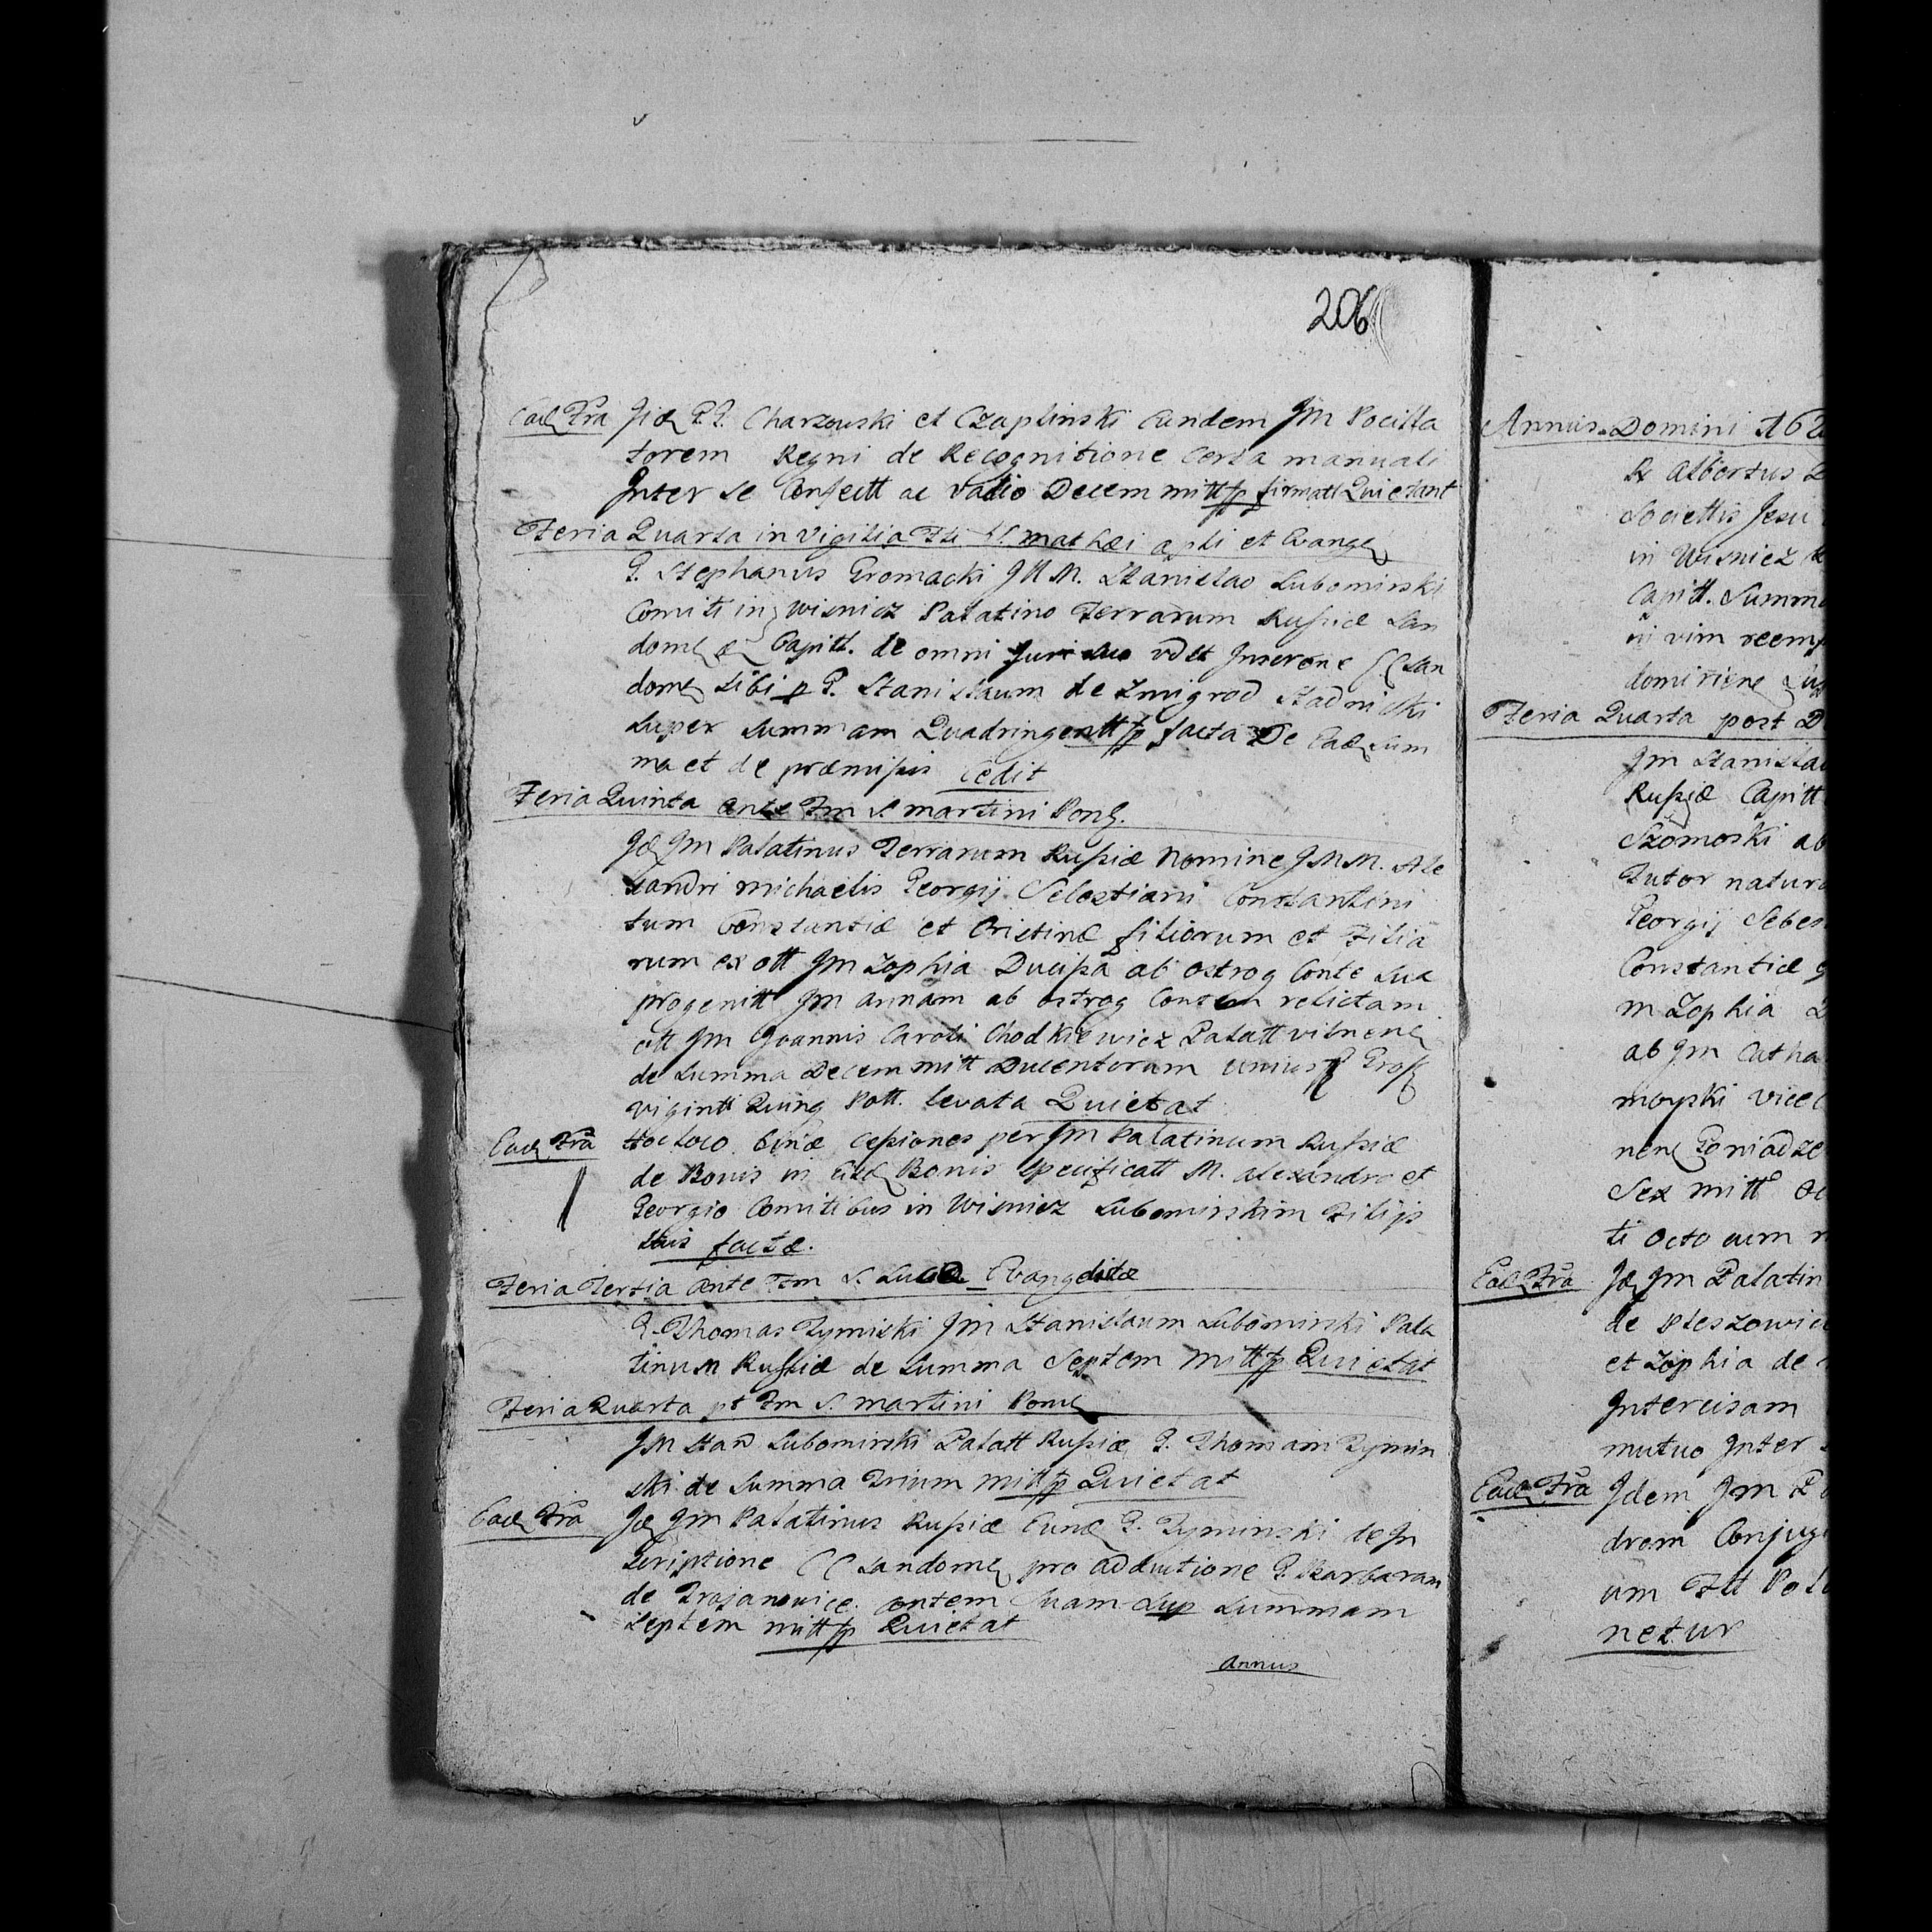 206
Ead Fra Jid G.G. Charzewski et Czaplinski Eundem Jm Pocilla
torem Regni de Recognitione Certa manuali
Inter se Confectt ac vadio Decem mitt fp firmatt Quietant
Feria Quarta in vigilia Fti S. mathæi apli et Evang
G. Stephanus Gromacki J M M. Stanislao Lubomirski
Comiti in Wisnicz Palatino Terrarum Russiæ San
dom æ Capitt. de omni Jure suo vdlt Inscrone CC San
dom sibi p G. Stanislaum de Zmigrod Stadnicki
super summam Quadringentt fp facta De Ead sum
ma et de præmissis Cedit
Feria Quinta ante Fm S. martini Pont.
Jd Jm Palatinus Terrarum Russiæ Nomine J M M. Ale
xandri michaelis Georgij Sebestiani Constantini
tum Constantiæ et Cristinæ filiorum et Filia
rum ex ott Jm Zophia Ducissa ab ostrog Conte sua
progenitt Jm annam ab ostrog Contem relictam
ott Jm Joannis Caroli Chodkiewicz Palatt vilnen
de summa Decem mitt Ducentorum unius Gross
viginti Quinq Poll. levata Quietat
Ead Fra Hoc loco binæ cessiones per Jm Palatinum Russiæ
de Bonis in Eisd Bonis specificatt M. alexandro et
Georgio Comitibus in Wisnicz Lubomirskim Filijs
suis factæ.
Feria Tertia ante Fm S. Lucæ Evangelistæ
G. Thomas Zyminski Jm Stanislaum Lubomirski Pala
tinum Russiæ de summa Septem mitt fp Quietat
Feria Quarta pt Fm S. martini Pont
JM Stan Lubomirski Palatt Russiæ G. Thomam Zymin
ski de summa Trium mitt fp Quietat
Ead Fra Jd Jm Palatinus Russiæ Eund G. Zyminski de In
scriptione CC Sandom pro advitione G. Barbaram
de Trojanowice. contem suam sup summam
Septem mitt fp Quietat
Annus
Annus Domini 162
R Albertus
Societtis Jesu
in Wisnicz
Capitt. Summ
in vim reemp
domirien
Feria Quarta post D
Jm Stanislau
Russiæ Capitt
Szomoski ab
Tutor natura
Georgij Sebes
Constantiæ
m Zophia
ab Jm Catha
moyski vice
nen Goniadze
Sex mitt
ti Octo cum
Ead Fra Jd Jm Palatin
de Pleszowic
et Zophia de
Intercisam
mutuo Inter
Ead Fra Idem Jm P
drom Conjug
um Ftt Pol
netur